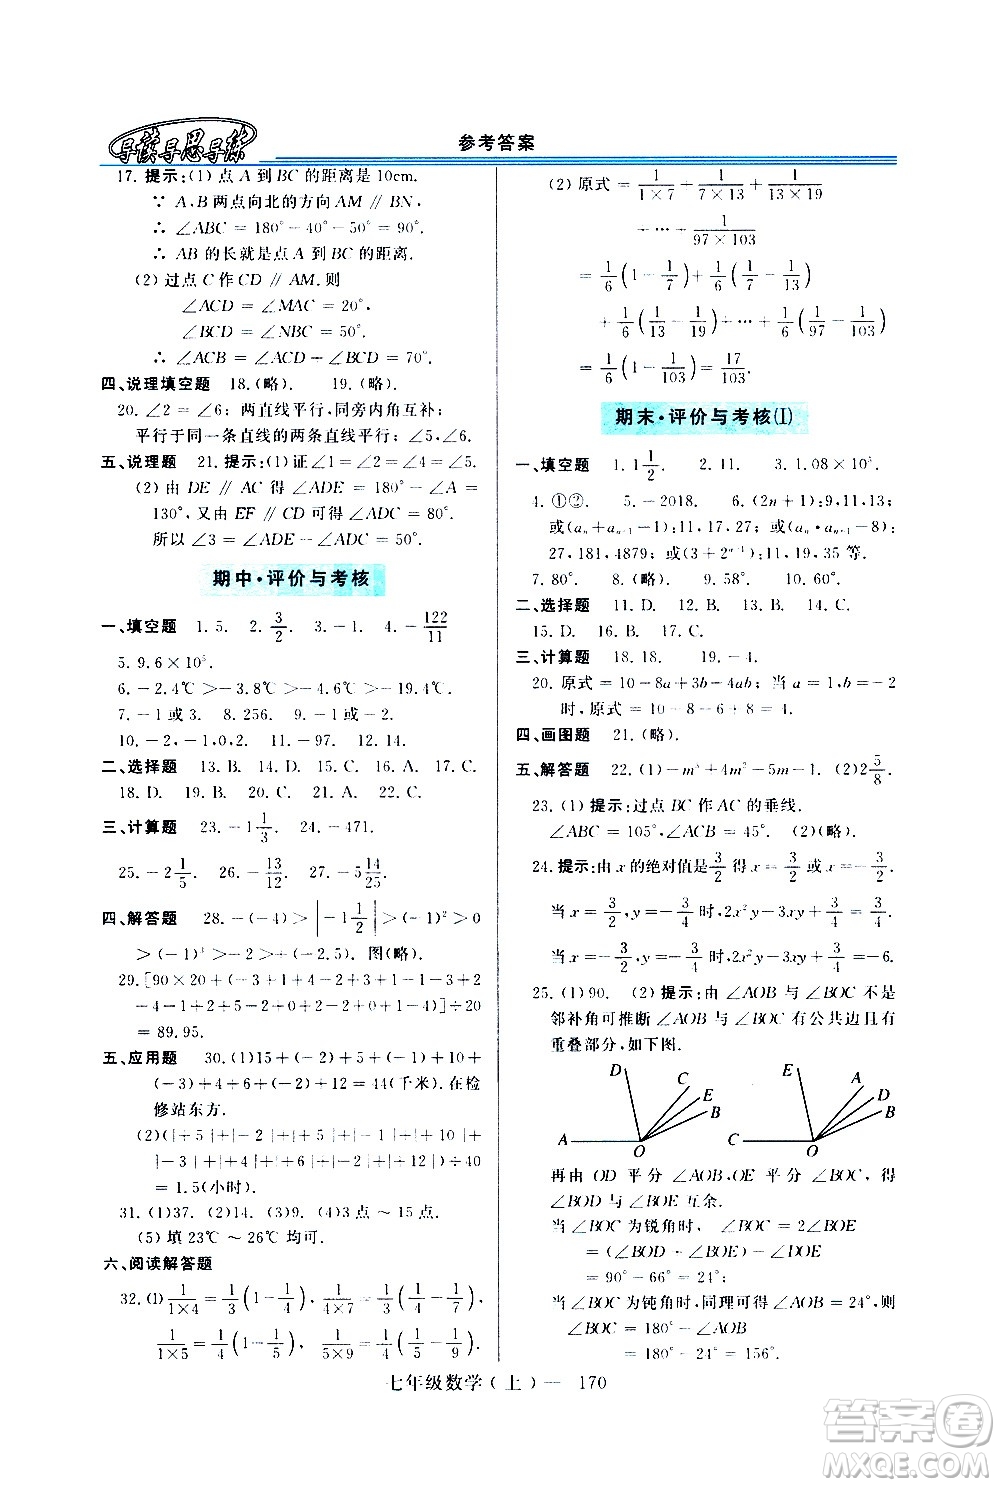 导读导思导练
参考答案
17. 提示:(1) 点 A 到 BC 的距离是 10cm.
∵ A,B 两点向北的方向 AM ∥ BN,
∴ ∠ABC = 180° − 40° − 50° = 90°.
∴ AB 的长就是点 A 到 BC 的距离.
(2) 过点 C 作 CD ∥ AM. 则
∠ACD = ∠MAC = 20°,
∠BCD = ∠NBC = 50°.
∴ ∠ACB = ∠ACD + ∠BCD = 70°.
四、说理填空题 18.(略). 19.(略).
20. ∠2 = ∠6; 两直线平行,同旁内角互补;
平行于同一条直线的两条直线平行;∠5,∠6.
五、说理题 21. 提示:(1)证∠1 = ∠2 = ∠4 = ∠5.
(2) 由 DE ∥ AC 得 ∠ADE = 180° − ∠A =
130°, 又由 EF ∥ CD 可得 ∠ADC = 80°.
所以 ∠3 = ∠ADE − ∠ADC = 50°.
期中·评价与考核
一、填空题 1. 5. 2. 3/2. 3. −1. 4. −122/11
6. −2.4℃ > −3.8℃ > −4.6℃ > −19.4℃.
7. −1 或 3. 8. 256. 9. −1 或 5.
10. −2,−1,0,2. 11. −97. 12. 14.
二、选择题 13. B. 14. B. 15. A. 16. B. 17. C.
18. D. 19. B. 20. C. 21. D. 22. C.
三、计算题 23. −1 1/3. 24. −471.
25. −2 1/5. 26. −13/12. 27. −5 14/25.
四、解答题 28. −(−4) > |−1 1/2| > (−1)² > 0
29. [90 × 20 + (−1 + 1 + 4 − 2 + 3 + 1 − 1 − 3 + 2
− 4 − 2 + 1 + 5 − 2 − 1 − 2 + 0 + 1 − 4)] ÷ 20
= 89.95.
五、应用题 30. (1)15 + (−2) + 5 + (−1) + 10 +
(−3) + (−2) + 12 + 4 + (−5) + 6 = 44(千米). 在检
修站东方.
= 1.5(小时).
31. (1)37. (2)14. (3)9. (4)3 点 ~ 15 点.
(5) 填 23℃ ~ 26℃ 均可.
六、阅读解答题
32. (1) 1/(1×4) = 1/3(1 − 1/4), 1/(4×7) = 1/3(1/4 − 1/7),
1/(1×5) = 1/4(1 − 1/5), 1/(5×9) = 1/4(1/5 − 1/9).
(2) 原式 = 1/(1×7) + 1/(7×13) + 1/(13×19)
+ … + 1/(97×103)
= 1/6(1 − 1/7) + 1/6(1/7 − 1/13)
+ 1/6(1/13 − 1/19) + … + 1/6(1/97 − 1/103)
= 1/6(1 − 1/103) = 17/103.
期末·评价与考核(Ⅰ)
一、填空题 1. 1 1/2. 2. 11.
4. ①②. 5. −2018. 6. (2n + 1);9,11,13;
或(aₙ + aₙ₋₁ − 1);13,17,27; 或(aₙ · aₙ₋₁ − 8);
7. 80°. 8. (略). 9. 75°. 10. 120°.
二、选择题 11. D. 12. C. 13. D. 14. C.
15. D. 16. B. 17. C.
三、计算题 18. 18. 19. −4.
20. 原式 = 10 − 8a + 3b − 4ab; 当 a = 1,b = −2
时, 原式 = 10 − 8 − 6 + 8 = 4.
四、画图题 21.(略).
五、解答题 22. (1)−m³ + 4m² − 5m − 1; (2)2 5/8.
23. (1) 提示:过点 BC 作 AC 的垂线.
∠ABC = 105°,∠ACB = 45°. (2)(略).
24. 提示:由 x 的绝对值是 3/2 得 x = 3/2 或 x = −3/2.
当 x = 3/2, y = −3/4 时, 2x²y − 3/2x − 3/4 =
当 x = −3/2, y = −3/4 时, 2x²y − 3/2x − 3/4 = −6.
25. (1)90. (2) 提示:由 ∠AOB 与 ∠BOC 不是
邻补角可推断 ∠AOB 与 ∠BOC 有公共边且有
重叠部分, 如下图.
D C E B A O
E A D B C O
再由 OD 平分 ∠AOB,OE 平分 ∠BOC, 得
∠BOD 与 ∠BOE 互余.
当 ∠BOC 为锐角时, ∠BOC = 2∠BOE
= (∠BOD + ∠BOE) − (∠BOD − ∠BOE)
= 90° − 66° = 24°;
当 ∠BOC 为钝角时, 同理可得 ∠AOB = 24°, 则
∠BOC = 180° − ∠AOB
= 180° − 24° = 156°.
七年级数学(上) — 170
答案圈
MXQE.COM